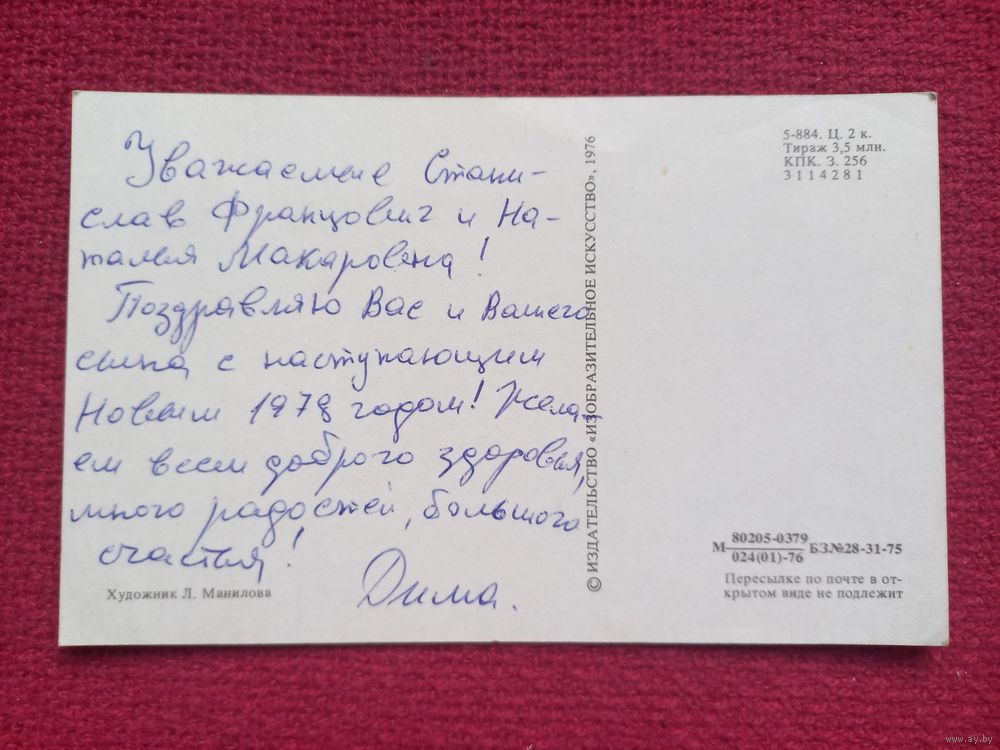 Уважаемые Стани-
слав Францович и На-
талья Макаровна!
Поздравляю Вас и Вашего
сына с наступающим
Новым 1978 годом! Жела-
ем всем доброго здоровья,
много радостей, большого
счастья!
Дима.
Художник Л. Манилова
© ИЗДАТЕЛЬСТВО «ИЗОБРАЗИТЕЛЬНОЕ ИСКУССТВО», 1976
5-884. Ц. 2 к.
Тираж 3,5 млн.
КПК. З. 256
3114281
М 80205-0379 БЗ№28-31-75
024(01)-76
Пересылке по почте в от-
крытом виде не подлежит
www.ay.by